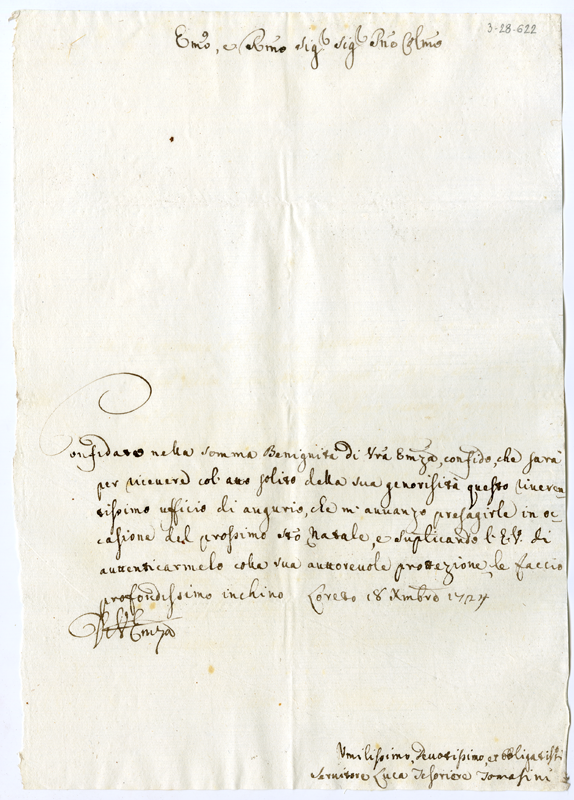 3-28-622
Emo, e Rmo Sigr Sigr Pno Colmo
Confidato nella somma Benignità di Vrã Emza, confido, che sarà
per ricevere col'atto solito della sua genorisità questo riveren-
tissimo ufficio di augurio, che mi avvanzo presagirle in oc-
casione del prossimo Sto Natale, e suplicando l'E.V. di
auttenticarmelo colla sua auttorevole prottezione, le faccio
profondissimo inchino Loreto 18 Xmbre 1724
Di V. Emza
Vmilissimo, Devotissimo, et Obligatissi
Servitore Luca Tesoriere Tomasini